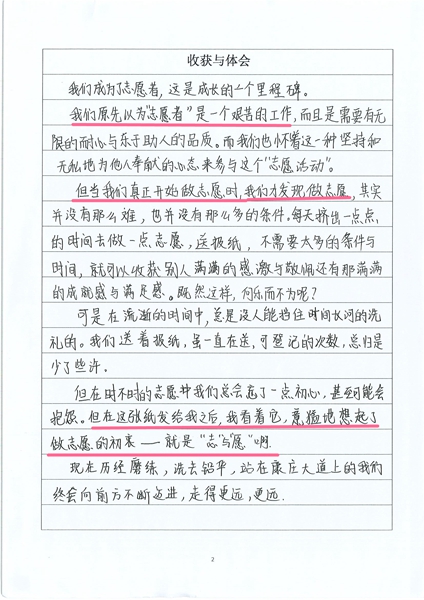 收获与体会
我们成为了志愿者，这是成长的一个里程碑。
我们原先以为“志愿者”是一个艰苦的工作，而且是需要有无
限的耐心与乐于助人的品质。而我们也怀着这一种坚持和
无私地为他人奉献的心态来参与这个“志愿活动”。
但当我们真正开始做志愿时，我们才发现，做志愿，其实
并没有那么难，也并没有那么多的条件。每天挤出一点点
的时间去做一点志愿，送报纸，不需要太多的条件与
时间，就可以收获别人满满的感激与敬佩还有那满满
的成就感与满足感。既然这样，何乐而不为呢？
可是在流逝的时间中，总是没人能挡住时间长河的洗
礼的。我们送着报纸，虽一直在送，可登记的次数，总归是
少了些许。
但在时不时的志愿中我们总会忘了一点初心，甚至可能会
抱怨。但在这张纸发给我之后，我看着它，意猛地想起了
做志愿的初衷——就是“志”与“愿”啊
现在历经磨练，洗去铅华，站在康庄大道上的我们
终会向前方不断迈进，走得更远，更远.
2